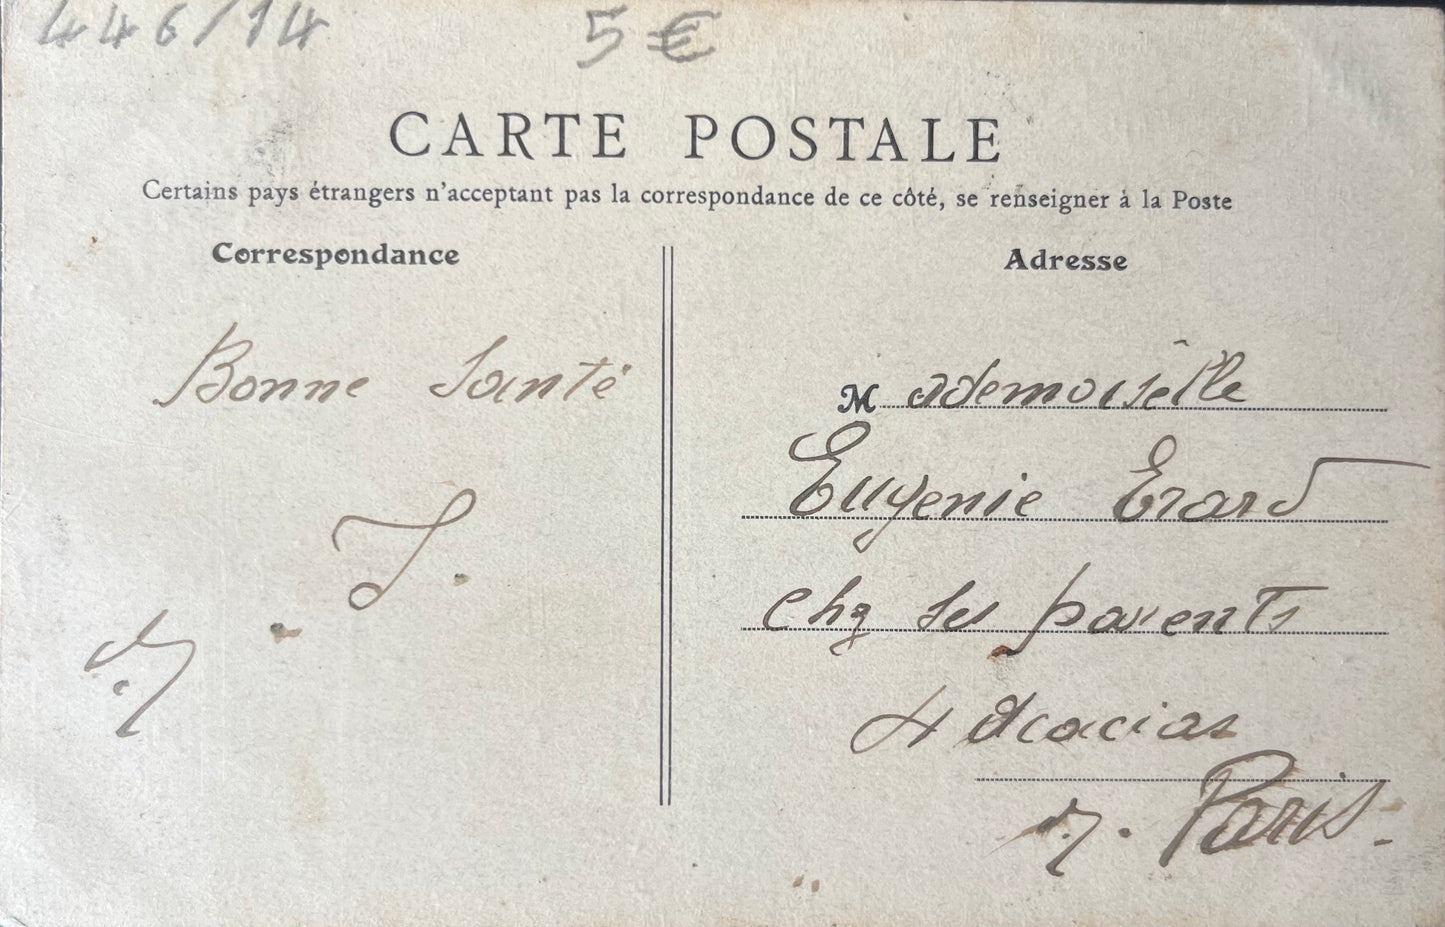 446/14 5 €
CARTE POSTALE
Certains pays étrangers n'acceptant pas la correspondance de ce côté, se renseigner à la Poste
Correspondance
Bonne Santé
J.
Adresse
Mademoiselle
Eugenie Erard
chz ses parents
4 Acacias
Paris.